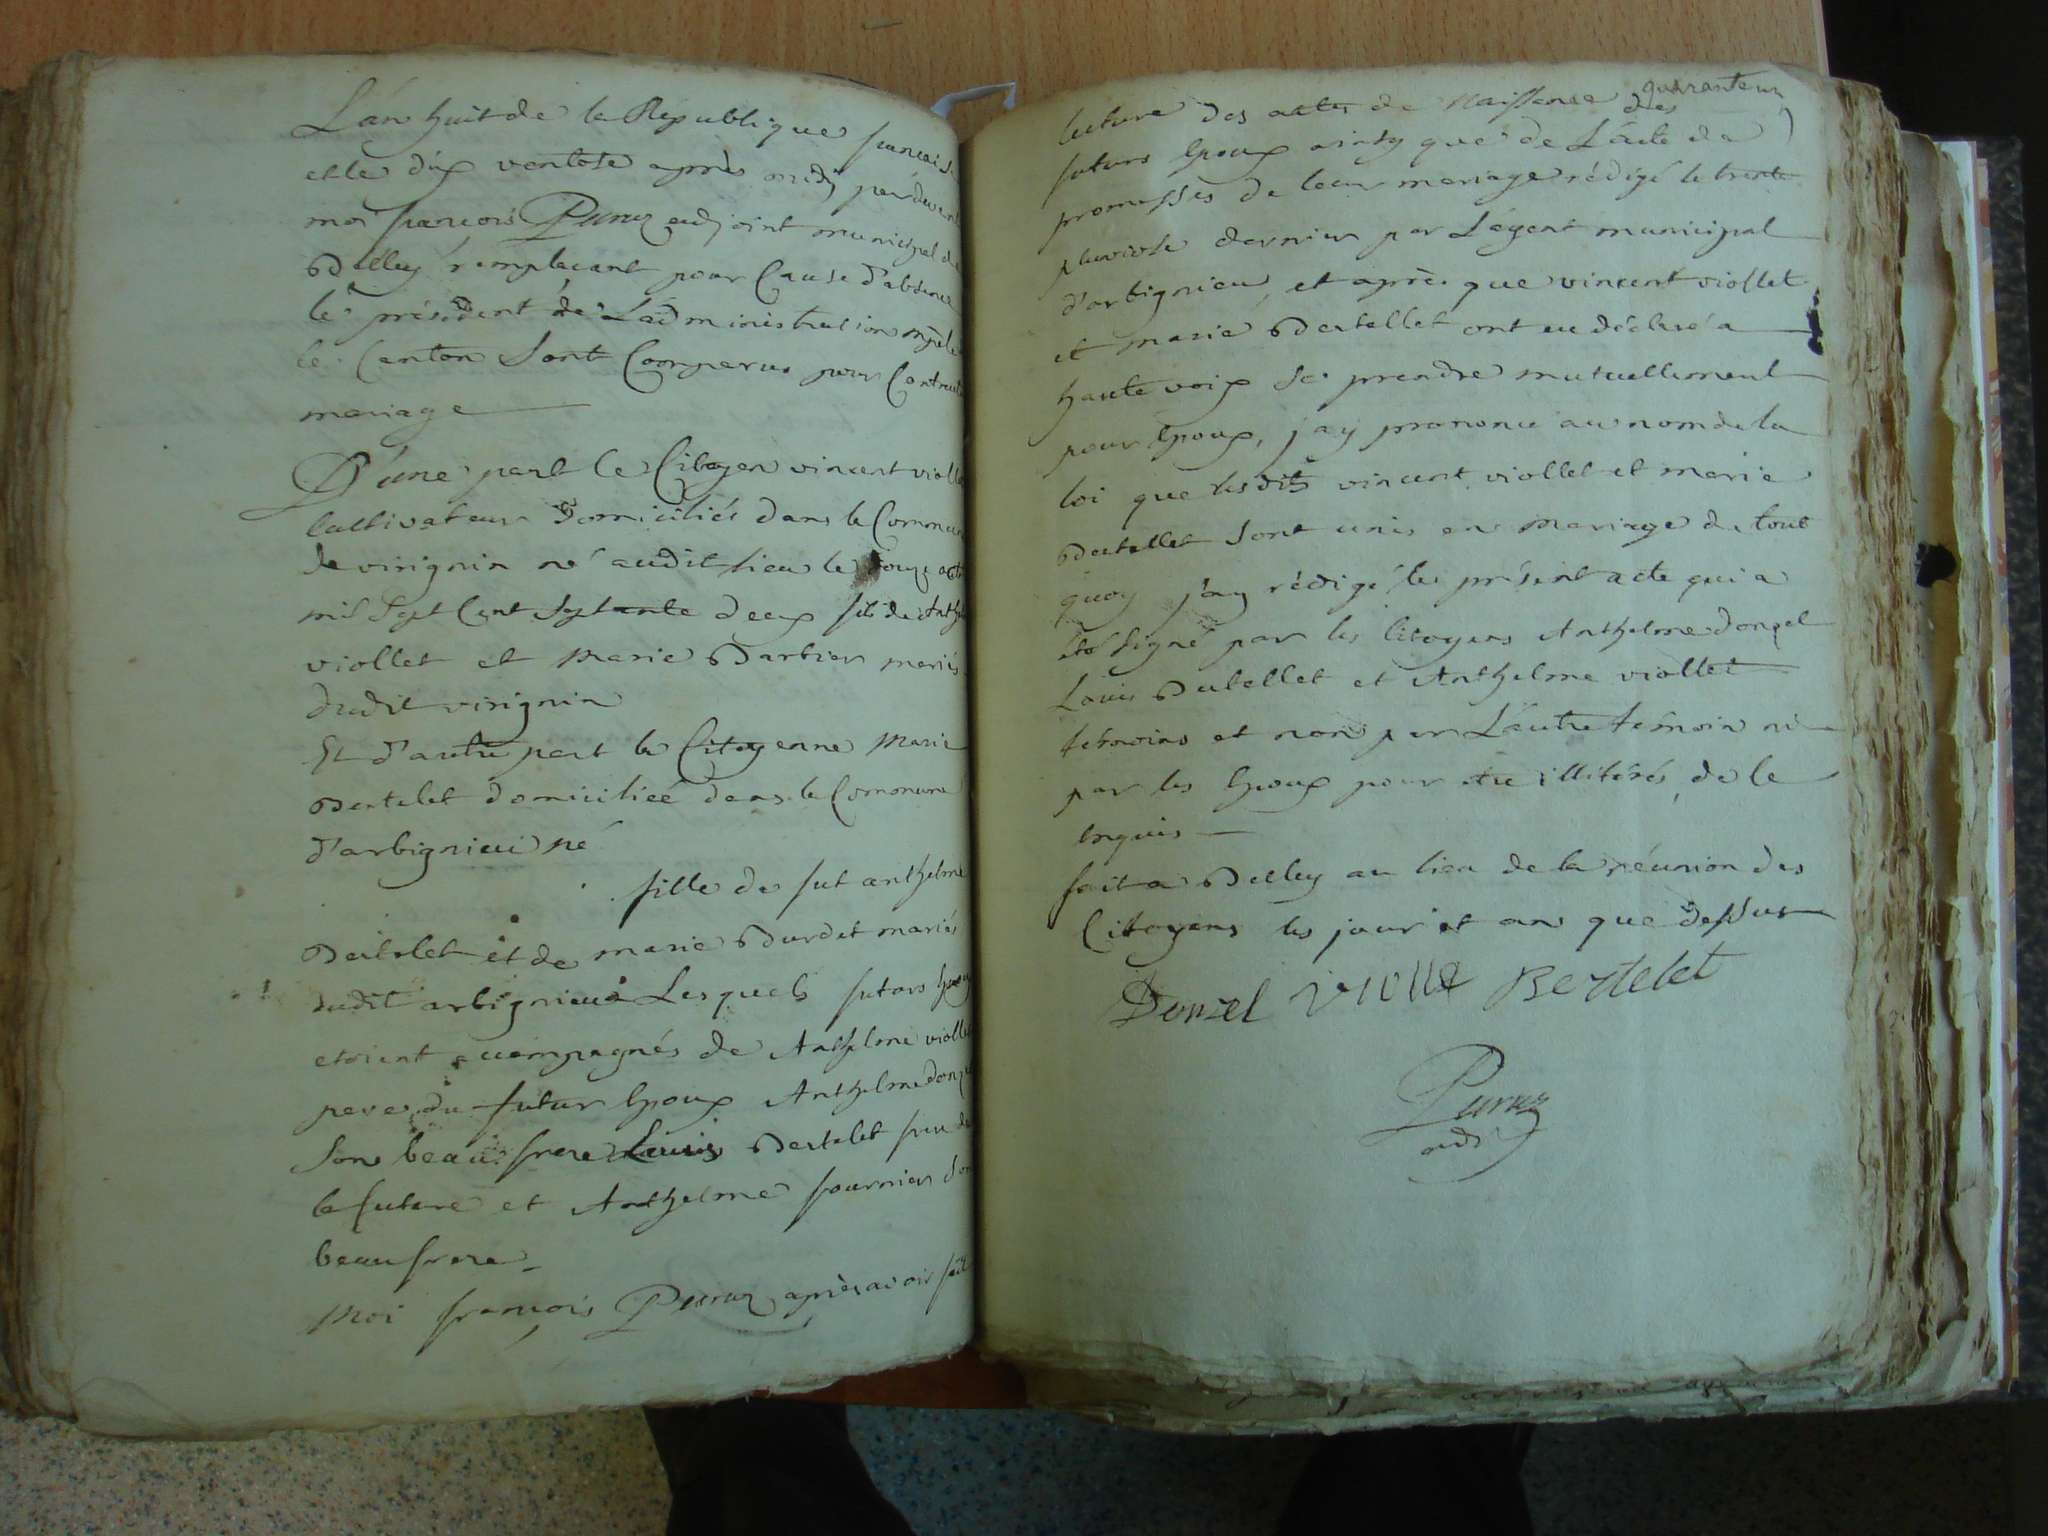 L'an huit de la République francaise
et le dix ventose apres midy pardevant
moi francois Puruz adjoint municipal de
Belley remplacant pour Cause d'absence
le président de L'administration mple
le Canton Sont Comparus pour Contract
mariage
D'une part le Citoyen vincent viollet
Cultivateur Domiciliés dans la Commune
de virignin né audit lieu le douze
mil Sept Cent Septante deux fils de Anthelme
viollet et Marie Barbier mariés
dudit virignin
Et d'autre part la Citoyenne Marie
Bertelet domiciliée dans la Commune
d'arbignieu né
fille de fut anthelme
Bertelet et de marie Burdet mariés
dudit arbignieu Lesquels futurs Epoux
etoient accompagnés de Anthelme viollet
pere du futur Epoux Anthelme donzel
Son beau frere Louis Bertelet frere de
la future et Anthelme fournier Son
beau frere
Moi francois Puruz après avoir fait
quarante un
lecture des actes de Naissance des
futurs Epoux ainsy que de L'acte de
promesses de leur mariage rédigé le trente
pluviose dernier par L'agent municipal
d'arbignieu, et après que vincent viollet
et marie Bertellet ont eu déclaré a
haute voix Se prendre mutuellement
pour Epoux, j'ay prononcé au nom de la
loi que lesdits vincent viollet et marie
Bertellet Sont unis en Mariage de tout
quoy j'ay rédigé le présent acte qui a
été Signé par les Citoyens Anthelme donzel
Louis Bertellet et Anthelme viollet
temoins et non par L'autre temoin ni
par les Epoux pour être illitérés, de ce
Enquis
fait a Belley au lieu de la réunion des
Citoyens les jour et an que dessus
Donzel viollet Bertelet
Puruz
adj